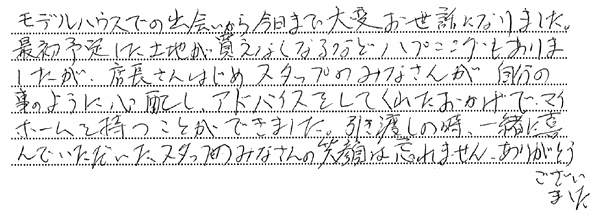 モデルハウスでの出会いから今日まで大変お世話になりました。
最初予定した土地が買えなくなるなどハプニングもありま
したが、店長さんはじめスタッフのみなさんが自分の
事のように心配し、アドバイスをしてくれたおかげでマイ
ホームを持つことができました。引き渡しの時、一緒に喜
んでいただいた、スタッフのみなさんの笑顔は忘れません。ありがとう
ござい
ました